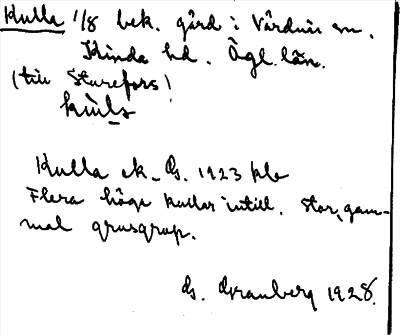 Kulla 1/8 bek. gård i Vårdnäs sn.
Kinda hd. Ögl. län.
(till Sturefors)
Kulla ek. Ds. 1923 ble
Flera höga kullar intill. Stor, gam-
mal grusgrop.
Ds. Granberg 1928.